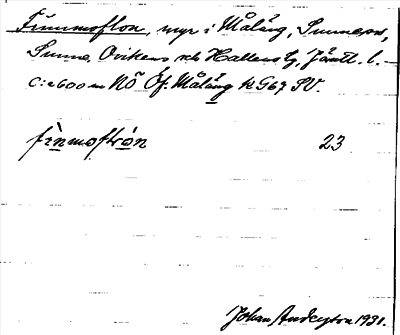 Finnmoflon, myr i Måläng, Sunne sn,
Sunne, Ovikens och Hallens tg, Jämtl. l. –
C:a 600 m NÖ Öf. Måläng K G67 SV.
fìnmoftròn 23
Johan Anderzon 1931.